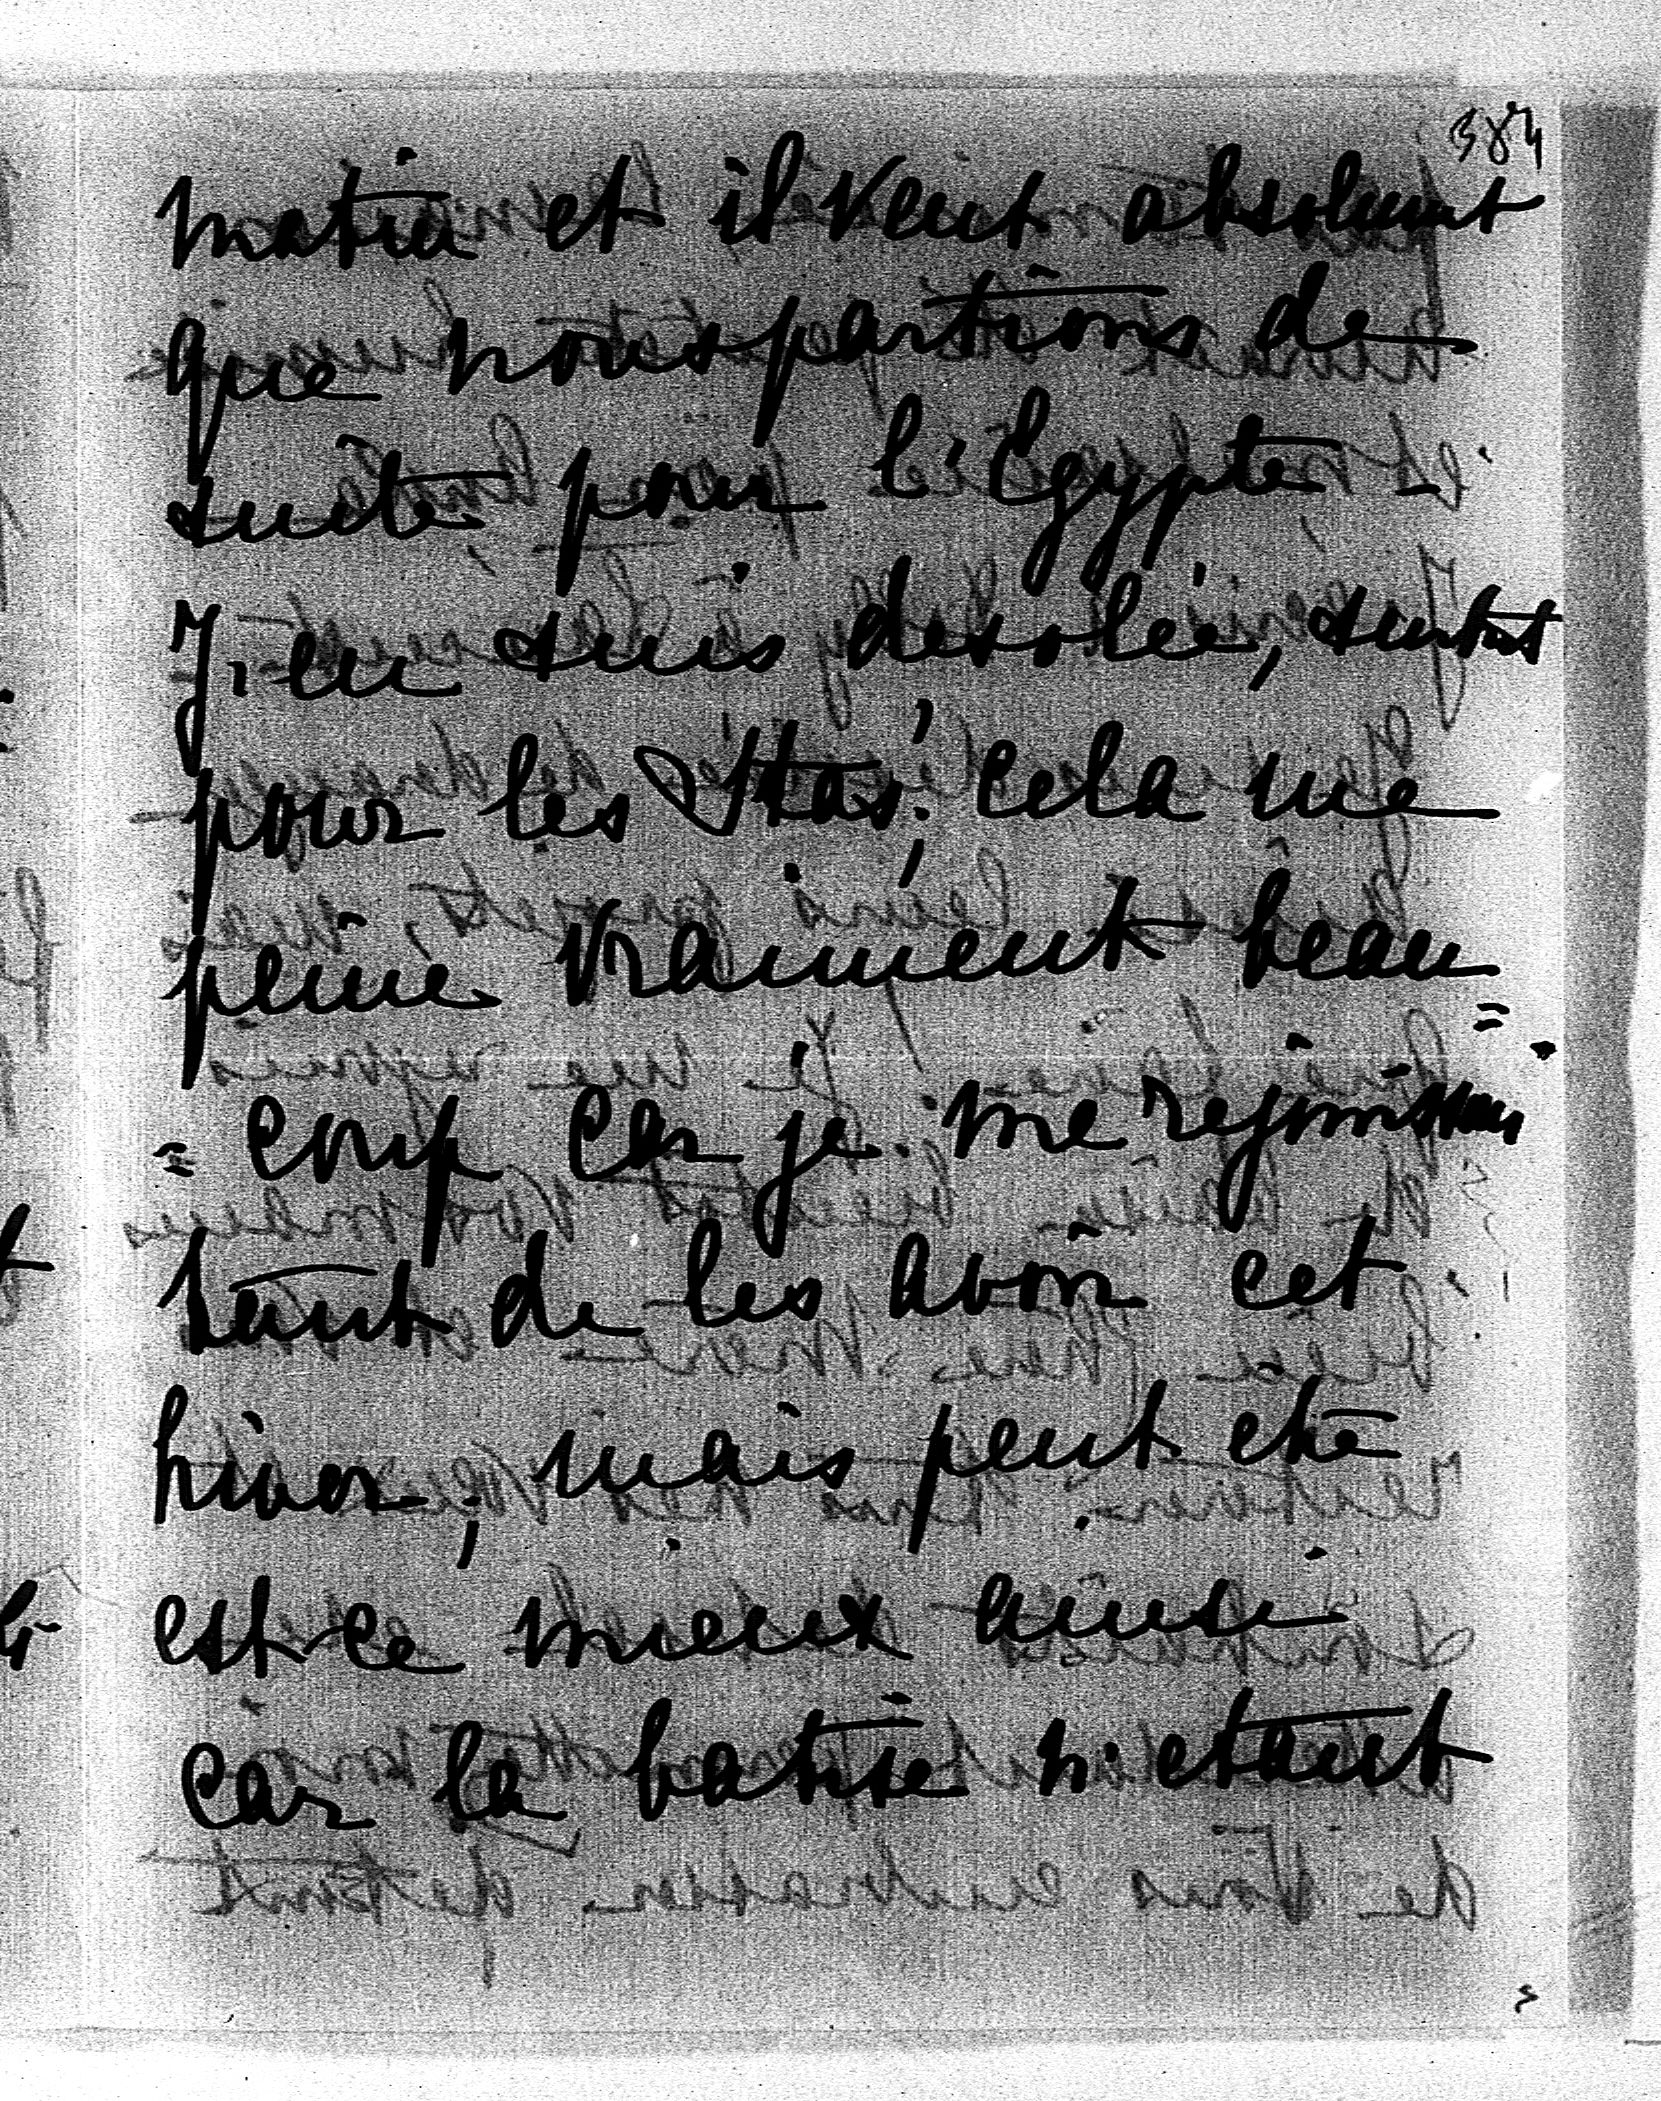 384
matin et il veut absolument
que nous partions de
suite pour l'Egypte –
J'en suis desolée, surtout
pour les Stas! cela me
peine vraiment beau=
=coup car je me rejouissais
tant de les avoir cet
hiver; mais peut etre
est ce mieux ainsi
car la batise n'etant